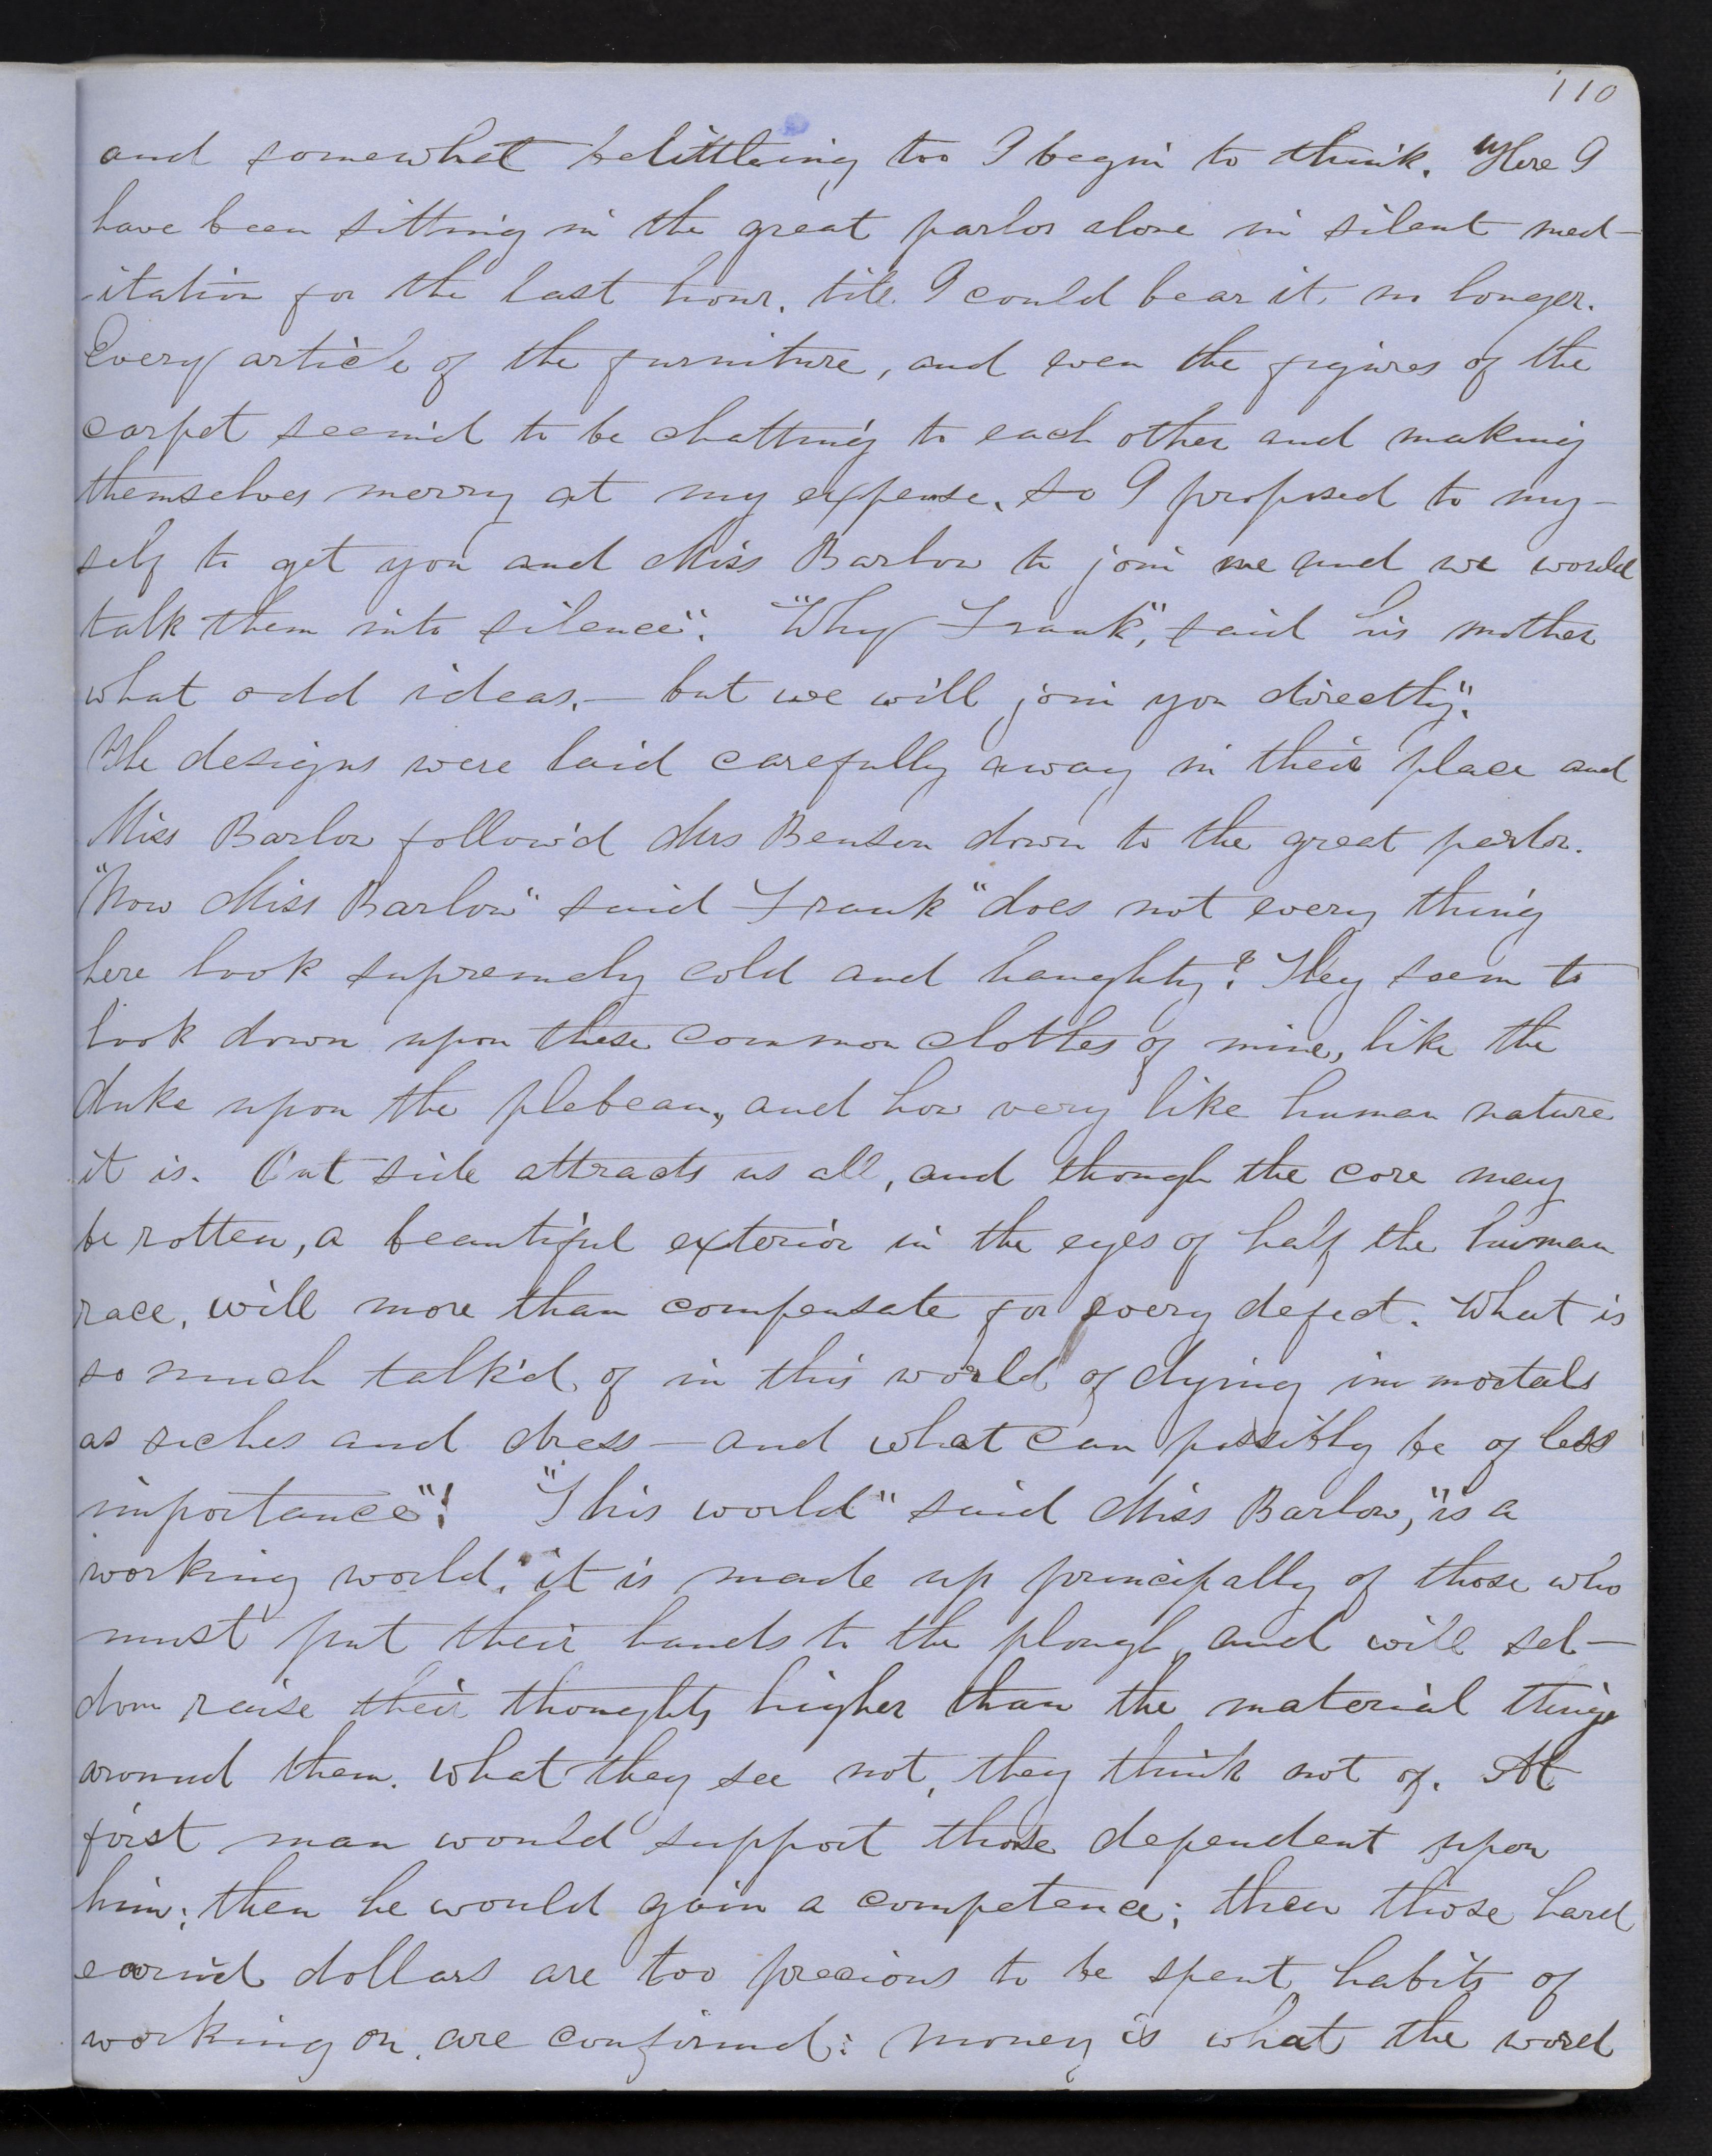 110
and somewhat belittleing too I begin to think. Here I
have been sitting in the great parlor alone in silent med-
-itation for the last hour, till I could bear it no longer.
Every article of the furniture, and even the figures of the
carpet seem'd to be chatting to each other and making
themselves merry at my expense. So I proposed to my-
self to get you and Miss Barlow to join me and we would
talk them into silence". "Why Frank", said his mother
what odd ideas,— but we will join you directly".
The designs were laid carefully away in their place and
Miss Barlow follow'd Mrs Benson down to the great parlor.
"Now Miss Barlow" said Frank "does not every thing
here look supremely cold and haughty? They seem to
look down upon these common clothes of mine, like the
duke upon the plebean, and how very like human nature
it is. Out side attracts us all, and though the core may
be rotten, a beautiful exterior in the eyes of half the human
race, will more than compensate for every defect. What is
so much talk'd of in this world of dying immortals
as riches and dress — and what can possibly be of less
importance"! "This world" said Miss Barlow, "is a
working world, it is made up principally of those who
must put their hands to the plough, and will sel-
dom raise their thoughts higher than the material things
around them. What they see not, they think not of. At
first man would support those dependent upon
him; then he would gain a competence; then those hard
earn'd dollars are too precious to be spent, habits of
working on, are confirmed: money is what the world